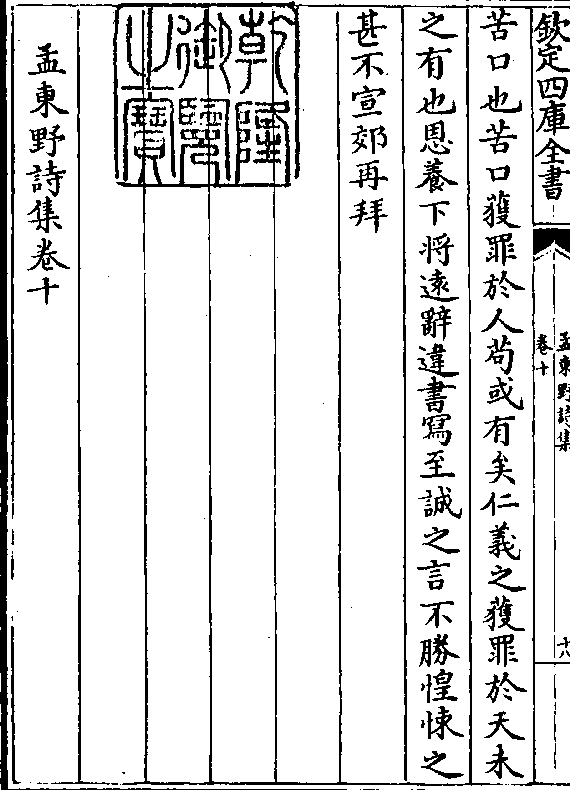 欽定四庫全書
孟東野詩集
卷十
十八
苦口也苦口獲罪於人苟或有矣仁義之獲罪於天未
之有也恩養下將遠辭違書寫至誠之言不勝惶悚之
甚不宣郊再拜
乾隆
御覽
之寶
孟東野詩集卷十